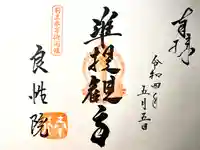 奉拝
令和四年
五月五日
准提観音
良性院